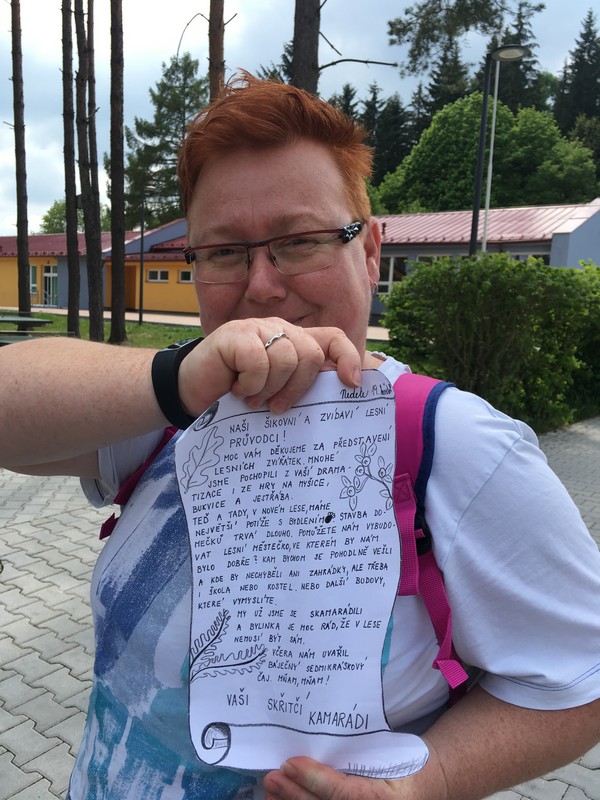 Neděle 19. květ
NAŠI ŠIKOVNÍ A ZVÍDAVÍ LESNÍ
PRŮVODCI!
MOC VÁM DĚKUJEME ZA PŘEDSTAVENÍ
LESNÍCH ZVÍŘÁTEK. MNOHÉ
JSME POCHOPILI Z VAŠÍ DRAMA-
TIZACE I ZE HRY NA MYŠICE,
BUKVICE A JESTŘÁBA.
TEĎ A TADY, V NOVÉM LESE, MÁME
NEJVĚTŠÍ POTÍŽE S BYDLENÍM. STAVBA DO-
MEČKŮ TRVÁ DLOUHO. POMŮŽETE NÁM VYBUDO-
VAT LESNÍ MĚSTEČKO, VE KTERÉM BY NÁM
BYLO DOBŘE? KAM BYCHOM SE POHODLNĚ VEŠLI
A KDE BY NECHYBĚLI ANI ZAHRÁDKY, ALE TŘEBA
I ŠKOLA NEBO KOSTEL NEBO DALŠÍ BUDOVY,
KTERÉ VYMYSLÍTE.
MY UŽ JSME SE SKAMARÁDILI
A BYLINKA JE MOC RÁD, ŽE V LESE
NEMUSÍ BÝT SÁM.
VČERA NÁM UVAŘIL
BÁJEČNÝ SEDMIKRÁSKOVÝ
ČAJ. MŇAM, MŇAM!
VAŠI SKŘÍTČÍ KAMARÁDI